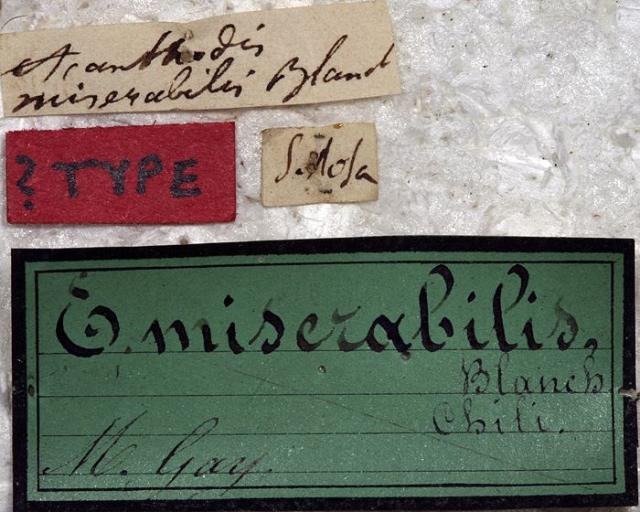 Acanthodis
miserabilis Blanch
? TYPE
Setosa
E. miserabilis.
Blanch
Chili.
M. Gay.